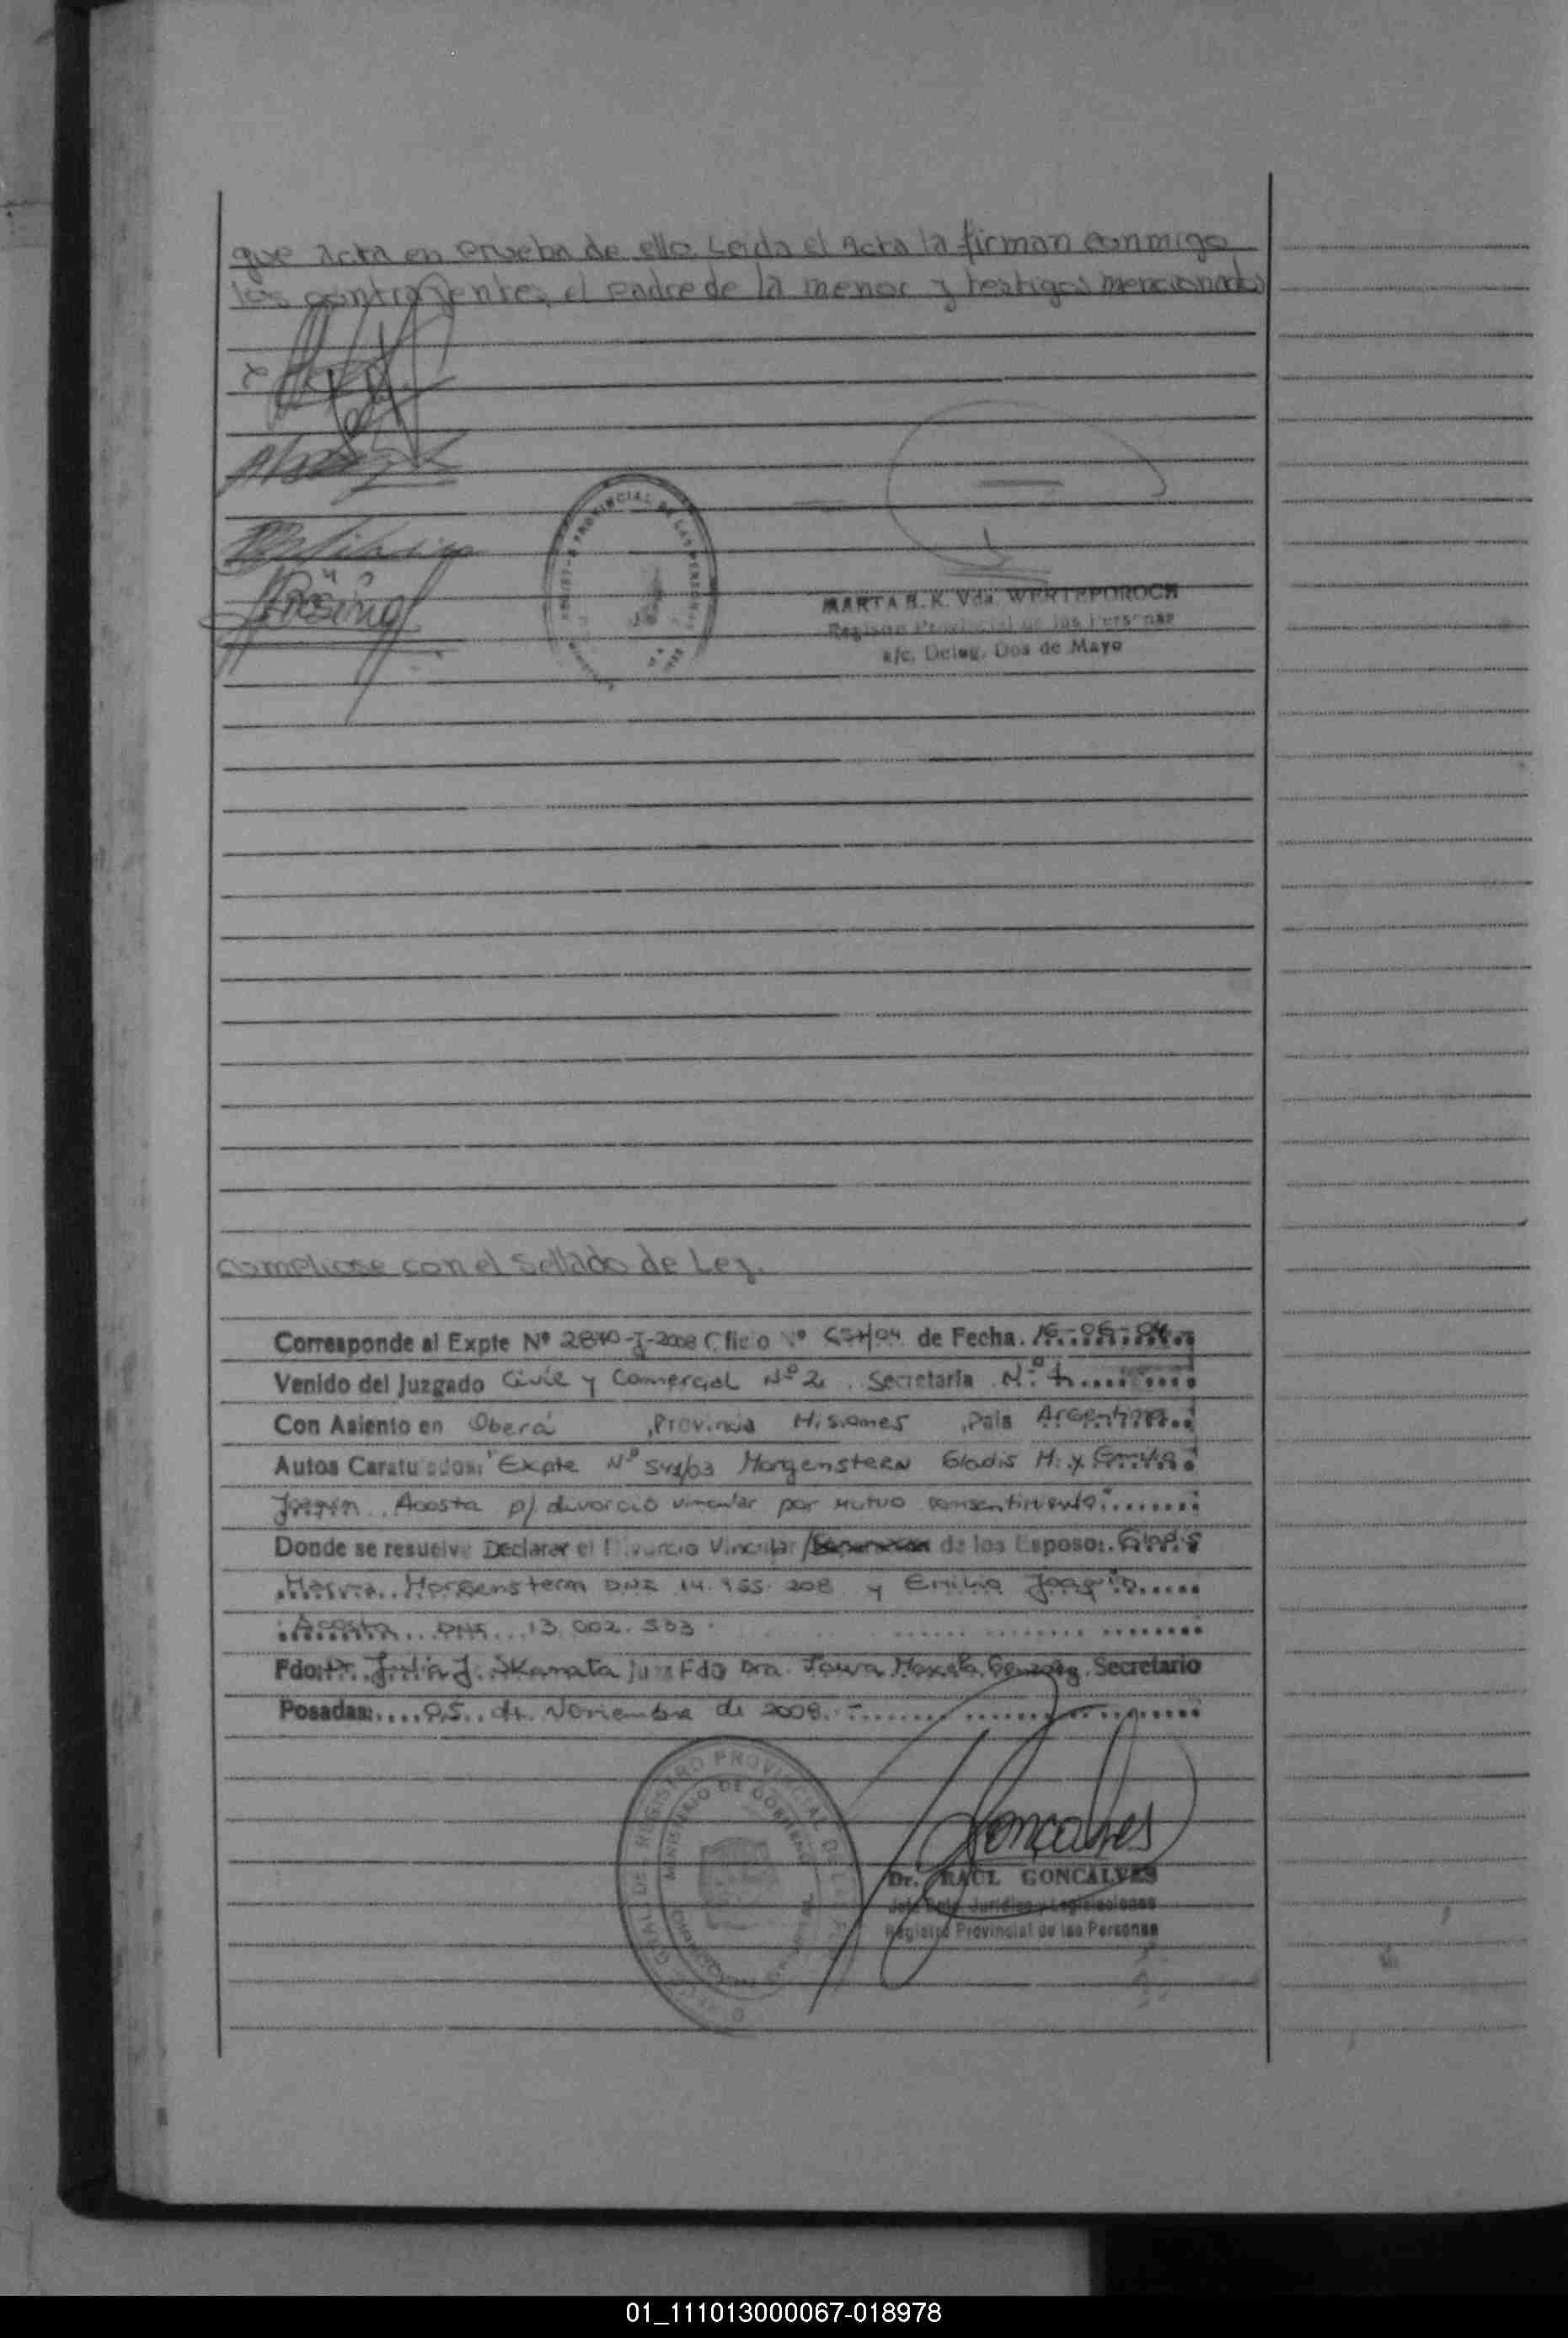 que acta en prueba de ello Leida el Acta la firman conmigo
los contrayentes, el padre de la menor y testigos mencionados
REGISTRO PROVINCIAL DE LAS PERSONAS
MARTA R. K. Vda. WERTEPOROCH
Registro Provincial de las Personas
a/c. Deleg. Dos de Mayo
Cumpliose con el Sellado de Ley.
Corresponde al Expte Nº 2870-J-2008 Oficio Nº /04 de Fecha. 16-06-04
Venido del Juzgado Civil y Comercial Nº 2. Secretaria Nº
Con Asiento en Oberá ,Provincia Misiones ,Pais Argentina
Autos Caratulados: "Expte Nº 541/03 Morgenstern Gladis M. y Emilio
Joaquin Acosta p/ divorcio vincular por mutuo consentimiento"
Donde se resuelve Declarar el Divorcio Vincular / de los Esposos. Gladis
Morgenstern DNI 14. 208 y Emilio Joaquin
Acosta DNI 13.002.533
Fdo: Dr. J. Skanata Juez Fdo Dra. Marcela Secretario
Posadas: 05 de Noviembre de 2008.
REGISTRO PROVINCIAL DE LAS
MINISTERIO DE GOBIERNO
Goncalves
Dr. RAUL GONCALVES
Jefe Dpto Juridico y Legislaciones
Registro Provincial de las Personas
01_111013000067-018978